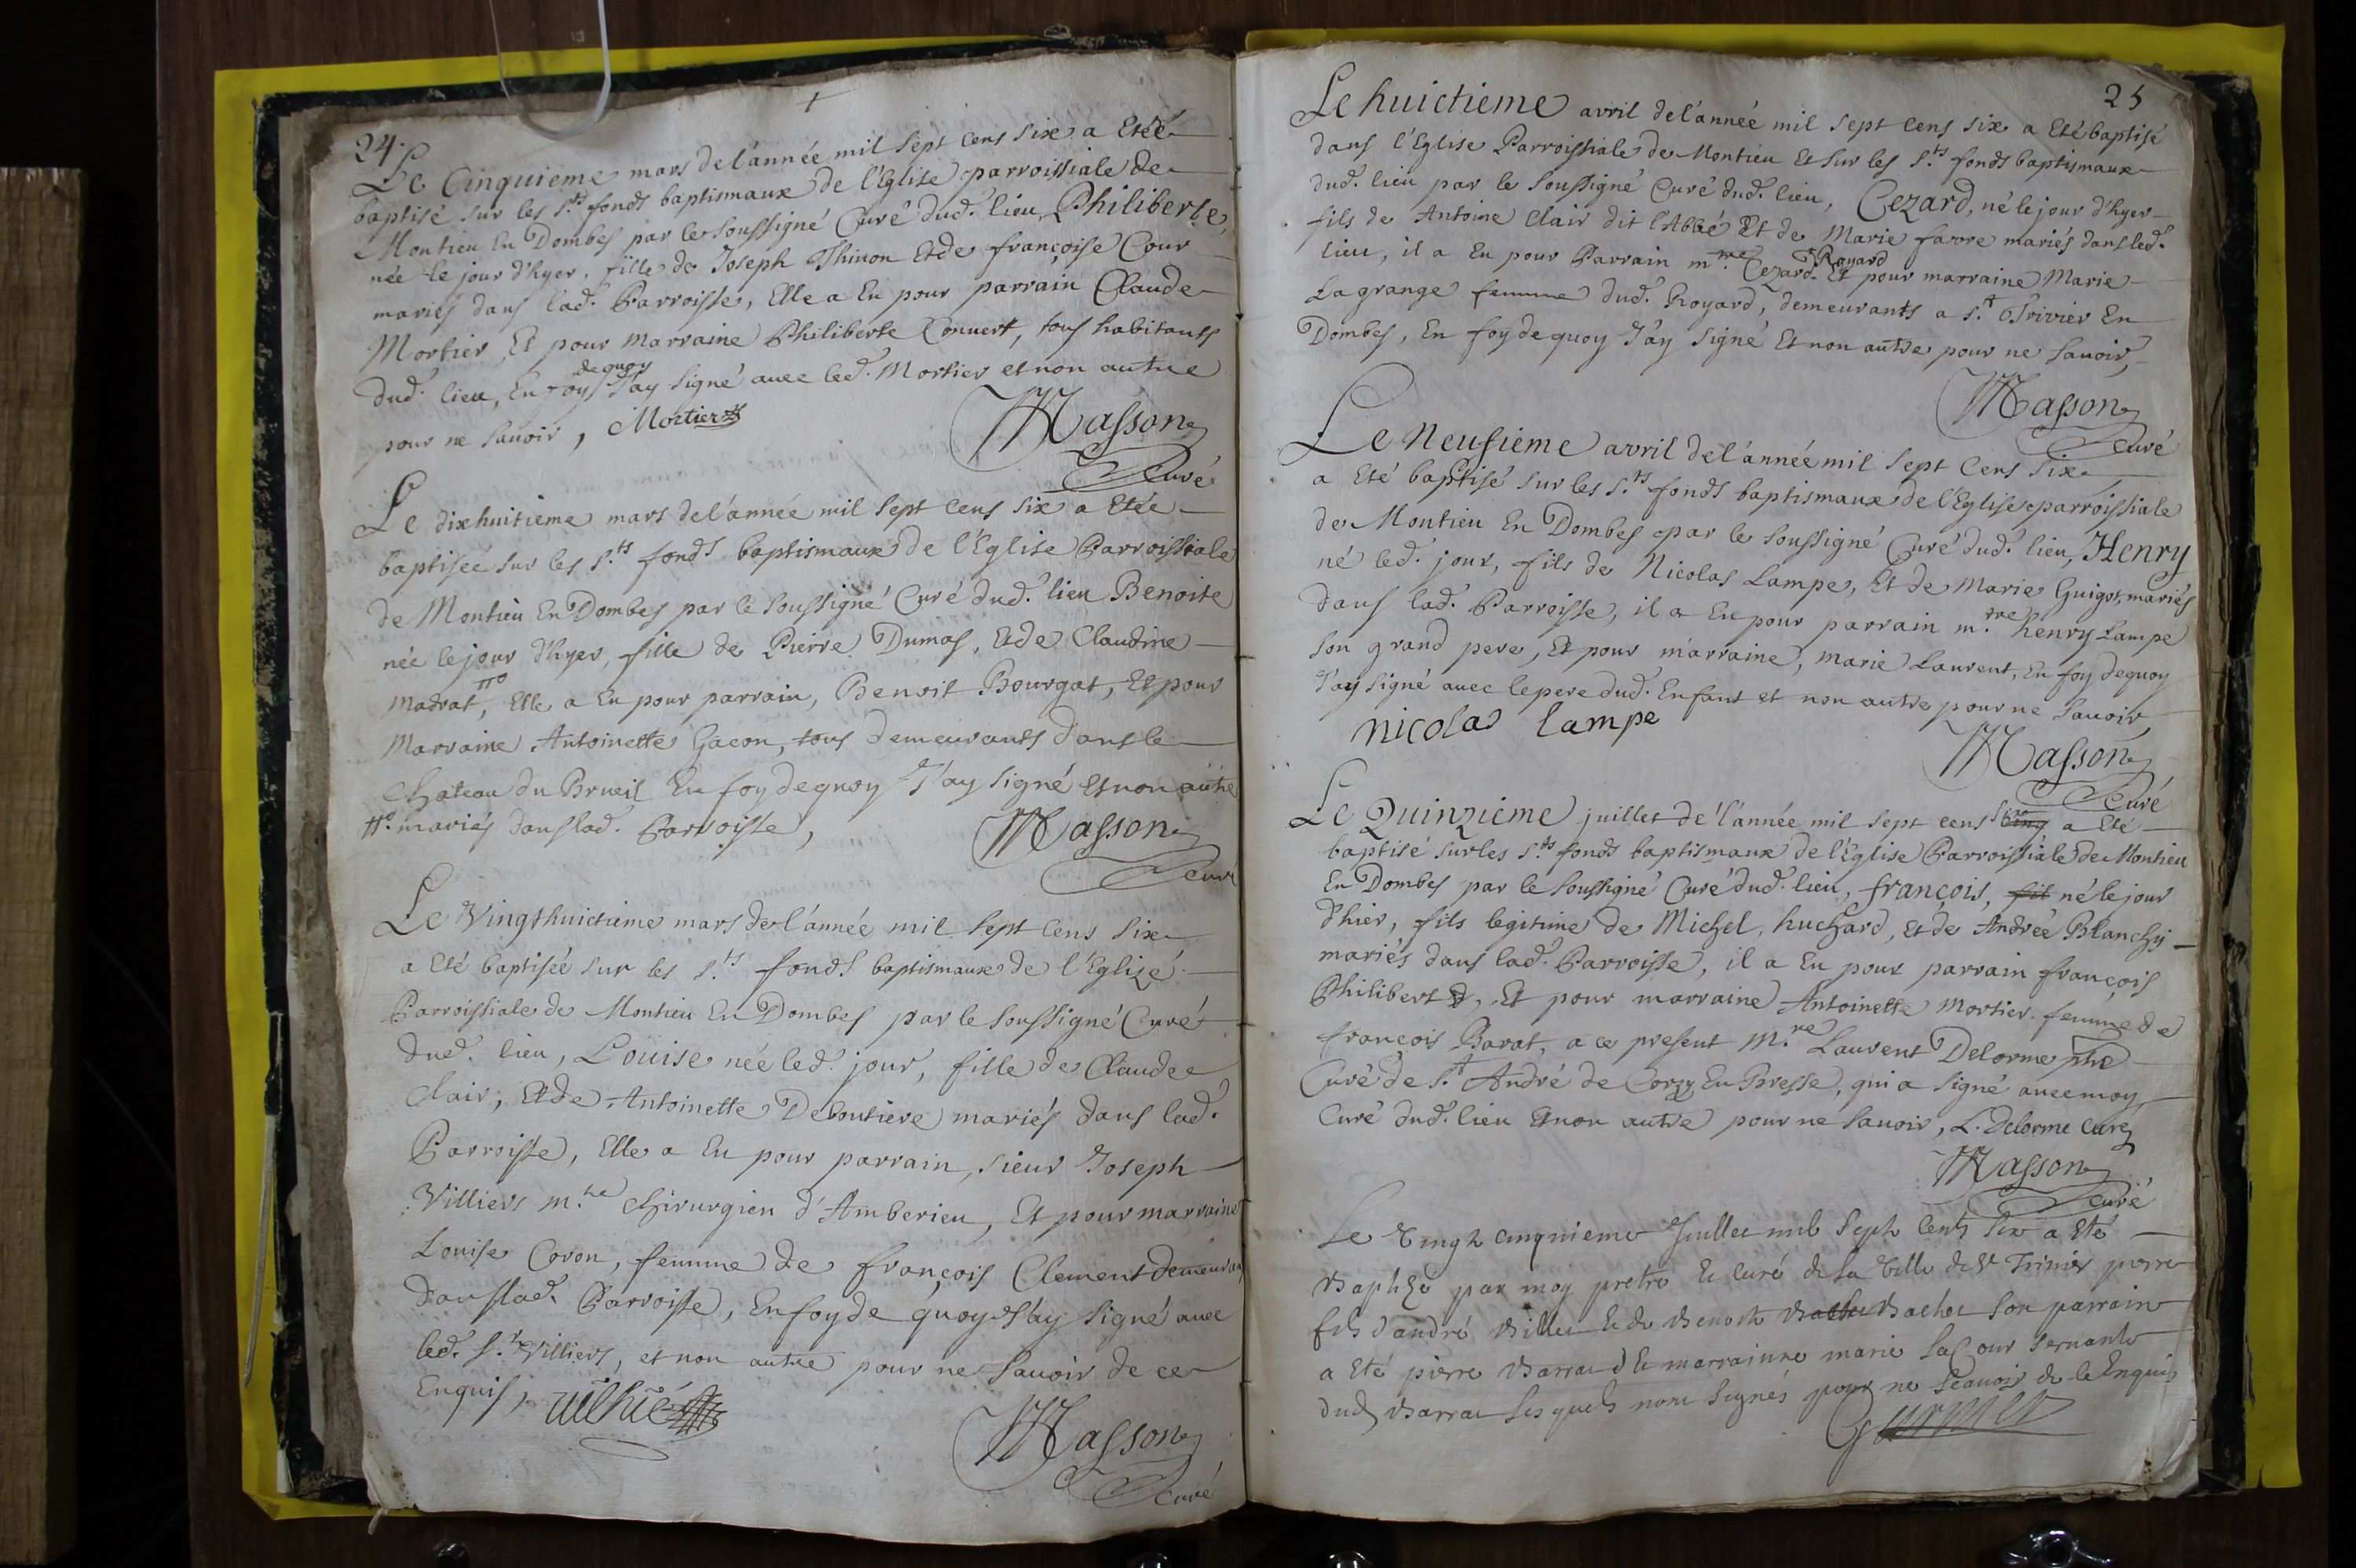 24.
Le Cinquieme mars de l'année mil sept cens six a Etée
baptisé sur les s.ts fonds baptismaux de l'Eglise parroissiale de
Montieu En Dombes par le soussigné Curé dud. lieu, Philiberte,
née le jour d'hyer, fille de Joseph Thinon Et de françoise Cour
mariés dans lad. Parroisse, Elle a Eu pour parrain Claude
Mortier, Et pour Marraine Philiberte Convert, tous habitants
dud. lieu, En foy de quoy J'ay signé avec led. Mortier et non autre
pour ne savoir, Mortier
Masson
Curé
Le dixhuitieme mars de l'année mil sept cens six a Etée
baptisée sur les s.ts fonds baptismaux de l'Eglise Parroissiale
de Montieu En Dombes par le soussigné Curé dud. lieu Benoite
née le jour d'hyer, fille de Pierre Dumas, Et de Claudine
Madrat, Elle a Eu pour parrain, Benoit Bourgat, Et pour
Marraine Antoinette Gacon, tous demeurants dans le
Chateau du Brueil En foy de quoy J'ay signé Et non autre
mariés dans lad. Parroisse,
Masson
Curé
Le Vingthuictieme mars de l'année mil sept cens six
a Eté baptisée sur les s.ts fonds baptismaux de l'Eglize
Parroissiale de Montieu En Dombes par le soussigné Curé
dud. lieu, Louise née led. jour, fille de Claude
Clair, Et de Antoinette Deboutiere mariés dans lad.
Parroisse, Elle a Eu pour parrain, sieur Joseph
Villiers m.tre Chirurgien d'Amberieu, Et pour marraine
Louise Coron, femme de françois Clement demeurant
dans lad. Parroisse, En foy de quoy J'ay signé avec
led. s.r Villiers, et non autre pour ne savoir de ce
Enquis,
Masson
Curé
25
Le huictieme avril de l'année mil sept cens six a Eté baptisé
dans l'Eglise Parroissiale de Montieu Et sur les s.ts fonds baptismaux
dud. lieu par le soussigné Curé dud. lieu, Cezard, né le jour d'hyer
fils de Antoine Clair dit l'Abbé Et de Marie favre mariés dans led.
lieu, il a Eu pour Parrain m.tre Cezard Royard Et pour marraine Marie
Lagrange femme dud. Royard, demeurants a s.t Trivier En
Dombes, En foy de quoy J'ay signé Et non autre pour ne savoir,
Masson
Curé
Le Neufieme avril de l'année mil sept cens six
a Eté baptisé sur les s.ts fonds baptismaux de l'Eglise parroissiale
de Montieu En Dombes par le soussigné Curé dud. lieu, Henry
né led. jour, fils de Nicolas Lampe, Et de Marie Guigot, mariés
dans lad. Parroisse, il a Eu pour parrain m.tre henry Lampe
son grand pere, Et pour marraine, marie Laurent, En foy de quoy
J'ay signé avec le pere dud. Enfant et non autre pour ne savoir
nicolas lampe
Masson
Curé
Le Quinzieme juillet de l'année mil sept cens a Eté
baptisé sur les s.ts fonds baptismaux de l'Eglise Parroissiale de Montieu
En Dombes par le soussigné Curé dud. lieu, françois, fil né le jour
d'hier, fils legitime de Michel huchard, et de Andreé Blanchy
mariés dans lad. Parroisse, il a Eu pour parrain françois
Philibert, Et pour marraine Antoinette Mortier femme de
françois Barat, a ce present M.re Laurent Delorme ptre
Curé de s.t André de Corzy En Bresse, qui a signé avec moy
Curé dud. lieu Et non autre pour ne savoir, L. Delorme Curé
Masson
Curé
Le Vingt cinquieme Juillet mil sept cents six a Eté
Baptizé par moy pretre Et curé de la Ville de St Trivier pierre
fils d'andré Billet Et de Benoite Bachet son parrain
a Eté pierre Barrat Et marrainne marie Lacour servante
dud. Barrat lesquels nont signés pour ne scavoir de ce Enquis